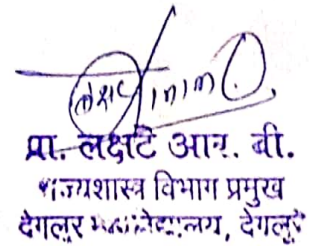 प्रा. लक्षटे आर. बी.
राज्यशास्त्र विभाग प्रमुख
देगलूर महाविद्यालय, देगलूर